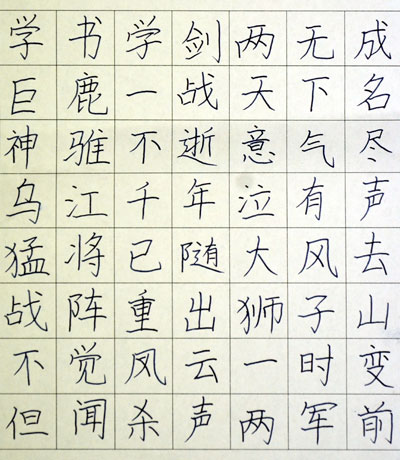 学书学剑两无成
巨鹿一战天下名
神骓不逝意气尽
乌江千年泣有声
猛将已随大风去
战阵重出狮子山
不觉风云一时变
但闻杀声两军前